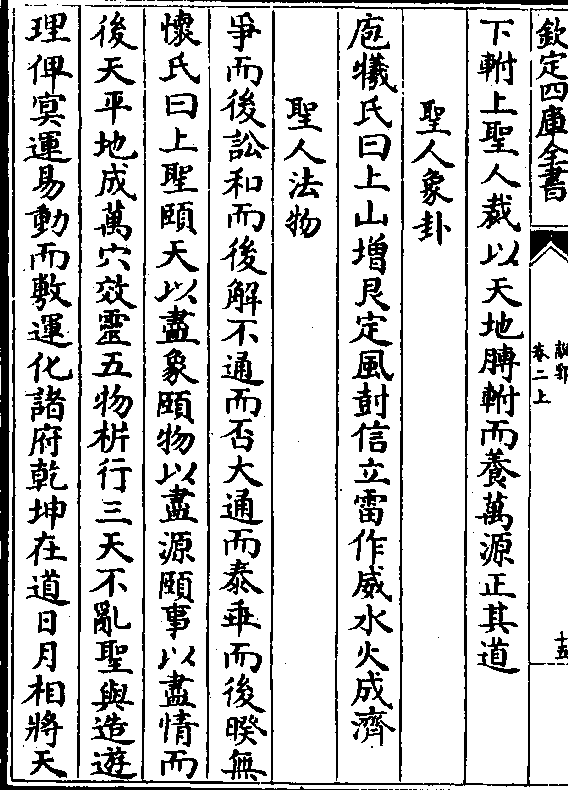 欽定四庫全書
卷二上
十五
下輔上聖人裁以天地膊輔而養萬源正其道
聖人象卦
庖犧氏曰上山增艮定風尌信立雷作威水火成濟
聖人法物
爭而後訟和而後解不通而否大通而泰乖而後暌無
懷氏曰上聖頤天以盡象頤物以盡源頤事以盡情而
後天平地成萬穴效靈五物析行三天不亂聖與造遊
理俾冥運易動而敷運化諸府乾坤在道日月相將天